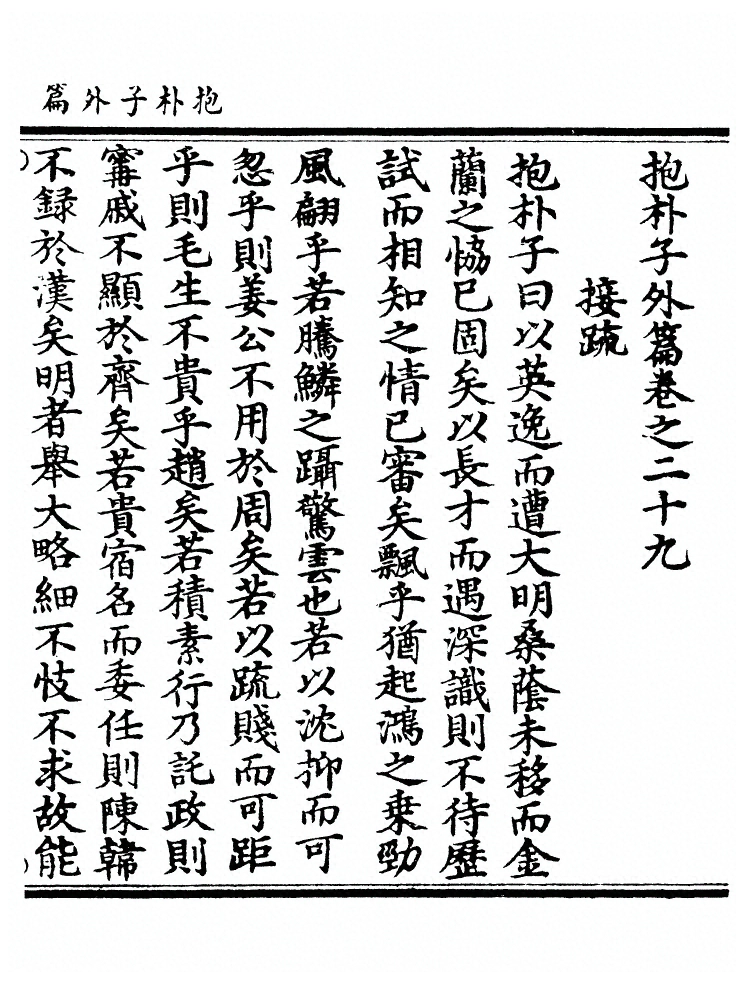 抱朴子外篇
抱朴子外篇卷之二十九
接疏
抱朴子曰以英逸而遭大明桑蔭未移而金
蘭之恊已固矣以長才而遇深識則不待歷
試而相知之情已審矣飄乎猶起鴻之乗勁
風翩乎若騰鱗之躡驚雲也若以沈抑而可
忽乎則姜公不用於周矣若以疏賤而可距
乎則毛生不貴乎趙矣若積素行乃託政則
甯戚不顯於齊矣若貴宿名而委任則陳韓
不録於漢矣明者舉大略細不忮不求故能